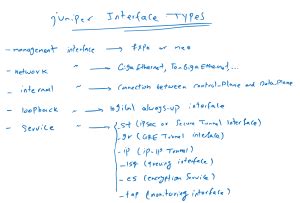 juniper Interface Types
- management interface → fxp0 or me0
- network " → GigaEthernet, Ten-GigaEthernet, ...
- internal " → connection between control-Plane and Data-Plane
- loopback " → logical always-up interface
- service " →
- st (IPsec or Secure Tunnel interface)
- gr (GRE Tunnel interface)
- IP (IP-IP Tunnel)
- lsq (queuing interface)
- es (encryption service)
- tap (monitoring interface)